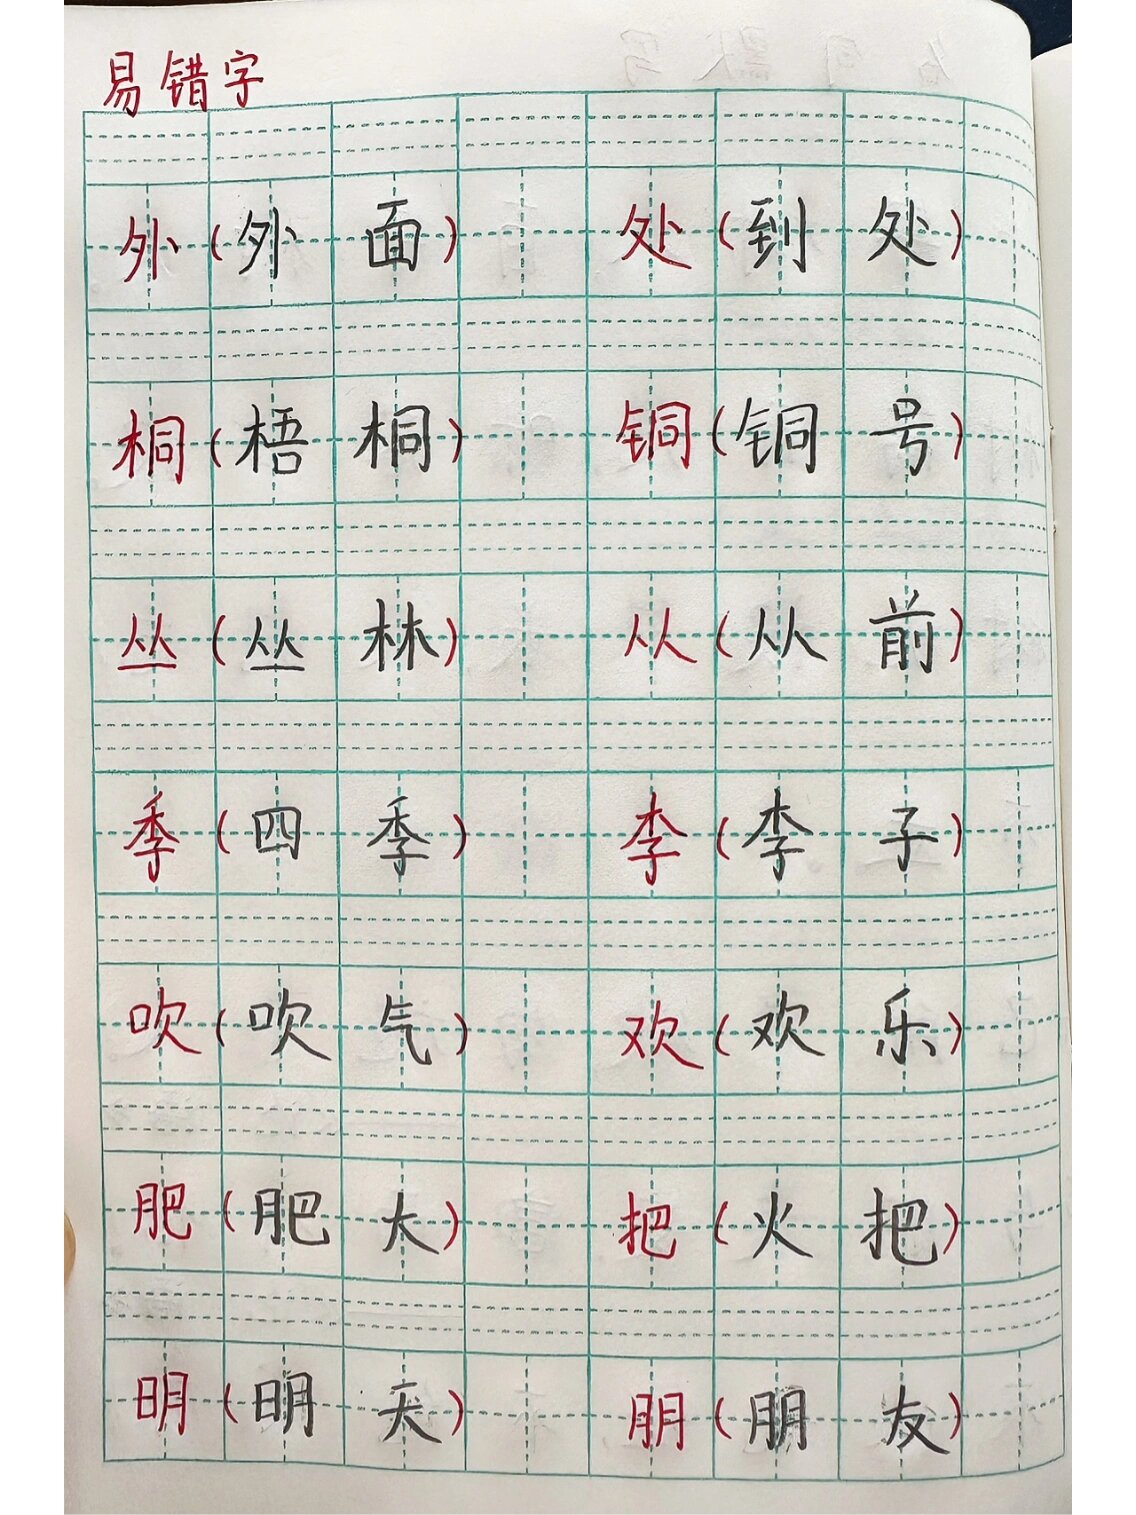 易错字
外(外面) 处(到处)
桐(梧桐) 铜(铜号)
丛(丛林) 从(从前)
季(四季) 李(李子)
吹(吹气) 欢(欢乐)
肥(肥大) 把(火把)
明(明天) 朋(朋友)